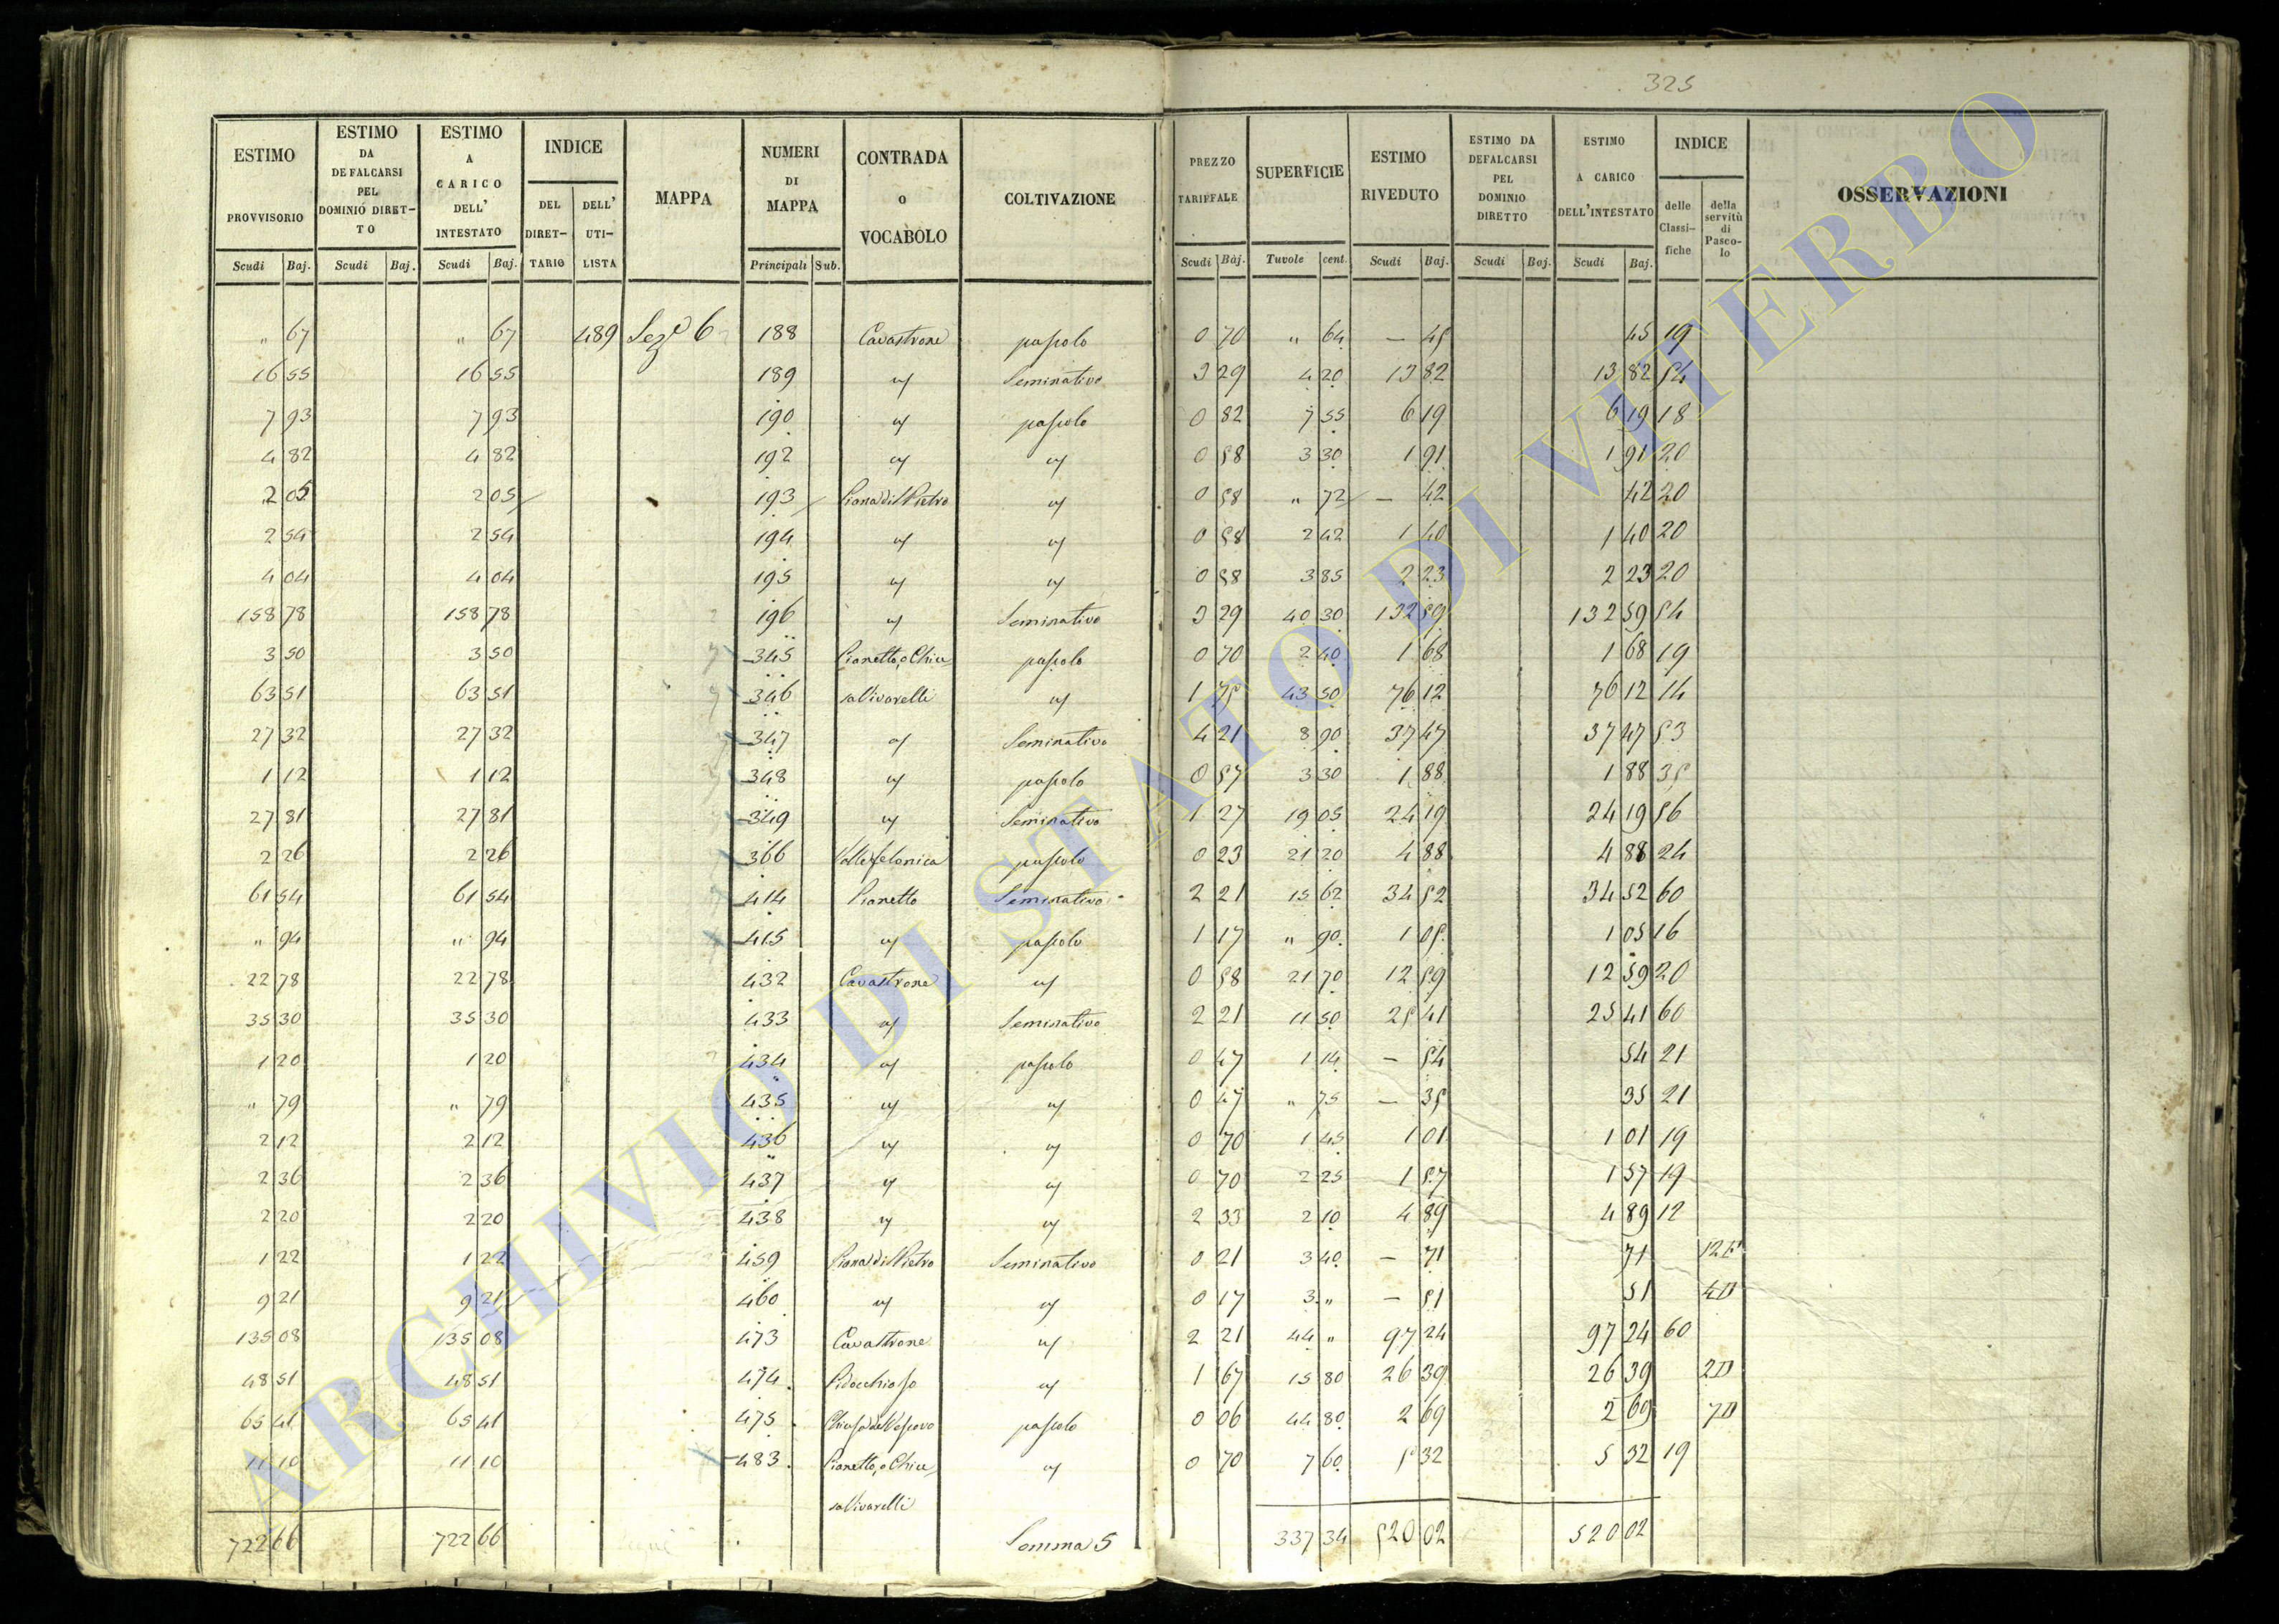 325
ESTIMO PROVVISORIO | ESTIMO DA DEFALCARSI PEL DOMINIO DIRETTO | ESTIMO A CARICO DELL' INTESTATO | INDICE | MAPPA | NUMERI DI MAPPA | CONTRADA O VOCABOLO | COLTIVAZIONE | PREZZO TARIFFALE | SUPERFICIE | ESTIMO RIVEDUTO | ESTIMO DA DEFALCARSI PEL DOMINIO DIRETTO | ESTIMO A CARICO DELL'INTESTATO | INDICE | OSSERVAZIONI
DEL DIRET-TARIO | DELL' UTI-LISTA | delle Classi-fiche | della servitù di Pasco-lo
Scudi | Baj. | Scudi | Baj. | Scudi | Baj. | Principali | Sub. | Scudi | Baj. | Tavole | cent. | Scudi | Baj. | Scudi | Baj. | Scudi | Baj.
" 67 | " 67 | 489 | Sez.e 6 | 188 | Cavastrone | pascolo | 0 70 | " 64 | — 45 | 45 | 19
16 55 | 16 55 | 189 | " | Seminativo | 3 29 | 4 20 | 13 82 | 13 82 | 54
7 93 | 7 93 | 190 | " | pascolo | 0 82 | 7 55 | 6 19 | 6 19 | 18
4 82 | 4 82 | 192 | " | " | 0 58 | 3 30 | 1 91 | 1 91 | 20
2 05 | 2 05 | 193 | Piana di Pietro | " | 0 58 | " 72 | — 42 | 42 | 20
2 54 | 2 54 | 194 | " | " | 0 58 | 2 42 | 1 40 | 1 40 | 20
4 04 | 4 04 | 195 | " | " | 0 58 | 3 85 | 2 23 | 2 23 | 20
158 78 | 158 78 | 196 | " | Seminativo | 3 29 | 40 30 | 132 59 | 132 59 | 54
3 50 | 3 50 | 345 | Pianetto, o Chiu | pascolo | 0 70 | 2 40 | 1 68 | 1 68 | 19
63 51 | 63 51 | 346 | sa Vivarelli | " | 1 75 | 43 50 | 76 12 | 76 12 | 14
27 32 | 27 32 | 347 | " | Seminativo | 4 21 | 8 90 | 37 47 | 37 47 | 53
1 12 | 1 12 | 348 | " | pascolo | 0 57 | 3 30 | 1 88 | 1 88 | 35
27 81 | 27 81 | 349 | " | Seminativo | 1 27 | 19 05 | 24 19 | 24 19 | 56
2 26 | 2 26 | 366 | Vallefelonica | pascolo | 0 23 | 21 20 | 4 88 | 4 88 | 24
61 54 | 61 54 | 414 | Pianetto | Seminativo | 2 21 | 15 62 | 34 52 | 34 52 | 60
" 94 | " 94 | 415 | " | pascolo | 1 17 | " 90 | 1 05 | 1 05 | 16
22 78 | 22 78 | 432 | Cavastrone | " | 0 58 | 21 70 | 12 59 | 12 59 | 20
35 30 | 35 30 | 433 | " | Seminativo | 2 21 | 11 50 | 25 41 | 25 41 | 60
1 20 | 1 20 | 434 | " | pascolo | 0 47 | 1 14 | — 54 | 54 | 21
" 79 | " 79 | 435 | " | " | 0 47 | " 75 | — 35 | 35 | 21
2 12 | 2 12 | 436 | " | " | 0 70 | 1 45 | 1 01 | 1 01 | 19
2 36 | 2 36 | 437 | " | " | 0 70 | 2 25 | 1 57 | 1 57 | 19
2 20 | 2 20 | 438 | " | " | 2 33 | 2 10 | 4 89 | 4 89 | 12
1 22 | 1 22 | 459 | Piana di Pietro | Seminativo | 0 21 | 3 40 | — 71 | 71
9 21 | 9 21 | 460 | " | " | 0 17 | 3 " | — 51 | 51 | 4D
135 08 | 135 08 | 473 | Cavastrone | " | 2 21 | 44 " | 97 24 | 97 24 | 60
48 51 | 48 51 | 474 | Pidocchioso | " | 1 67 | 15 80 | 26 39 | 26 39 | 2D
65 41 | 65 41 | 475 | Chiusa del Vescovo | pascolo | 0 06 | 44 80 | 2 69 | 2 69 | 7D
11 10 | 11 10 | 483 | Pianetto, o Chiu | " | 0 70 | 7 60 | 5 32 | 5 32 | 19
sa Vivarelli
722 66 | 722 66 | Somma 5 | 337 34 | 520 02 | 520 02
ARCHIVIO DI STATO DI VITERBO